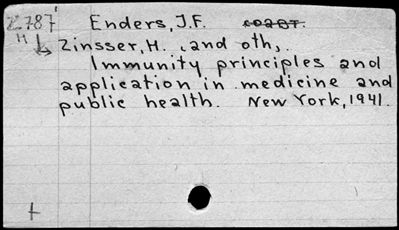 Z787 Enders, J.F.
11 Zinsser, H. , and oth,.
Immunity principles and
application in medicine and
public health. New York, 1941.